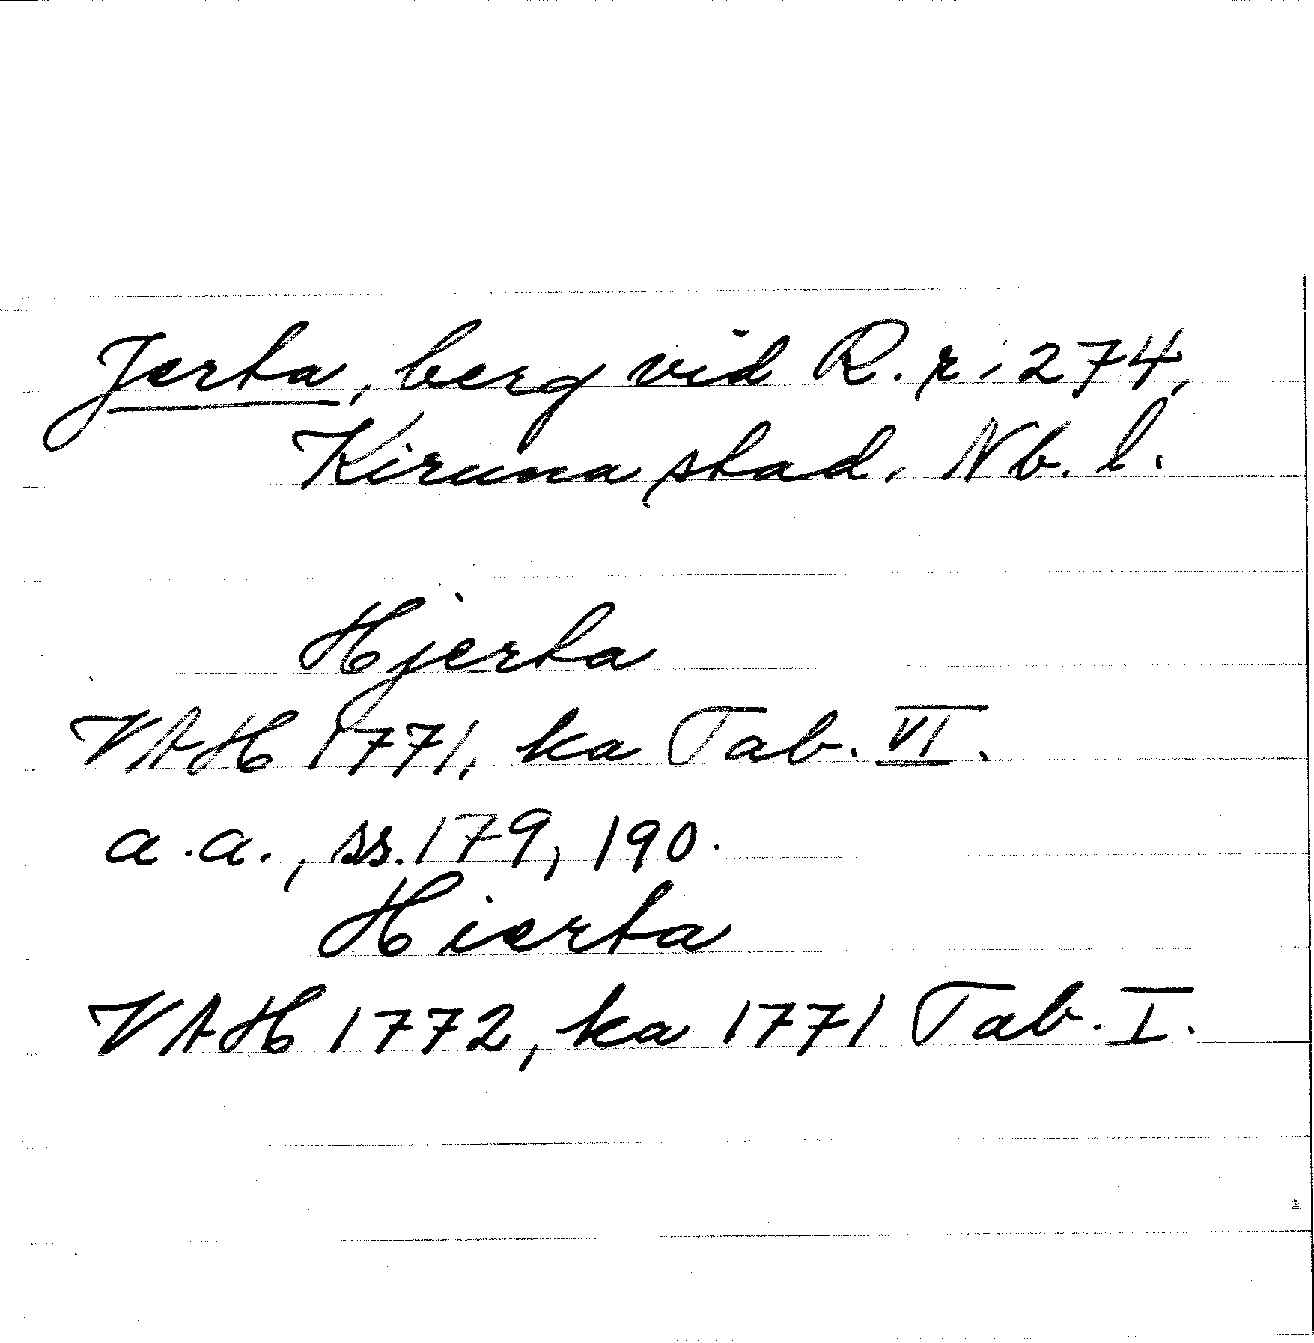 Jerta, berg vid R.r. 274,
Kiruna stad. Nb. l.
Hjerta
VAH 1771, ka Tab. VI.
a.a., ss. 179, 190.
Hierta
VAH 1772, ka 1771 Tab. I.